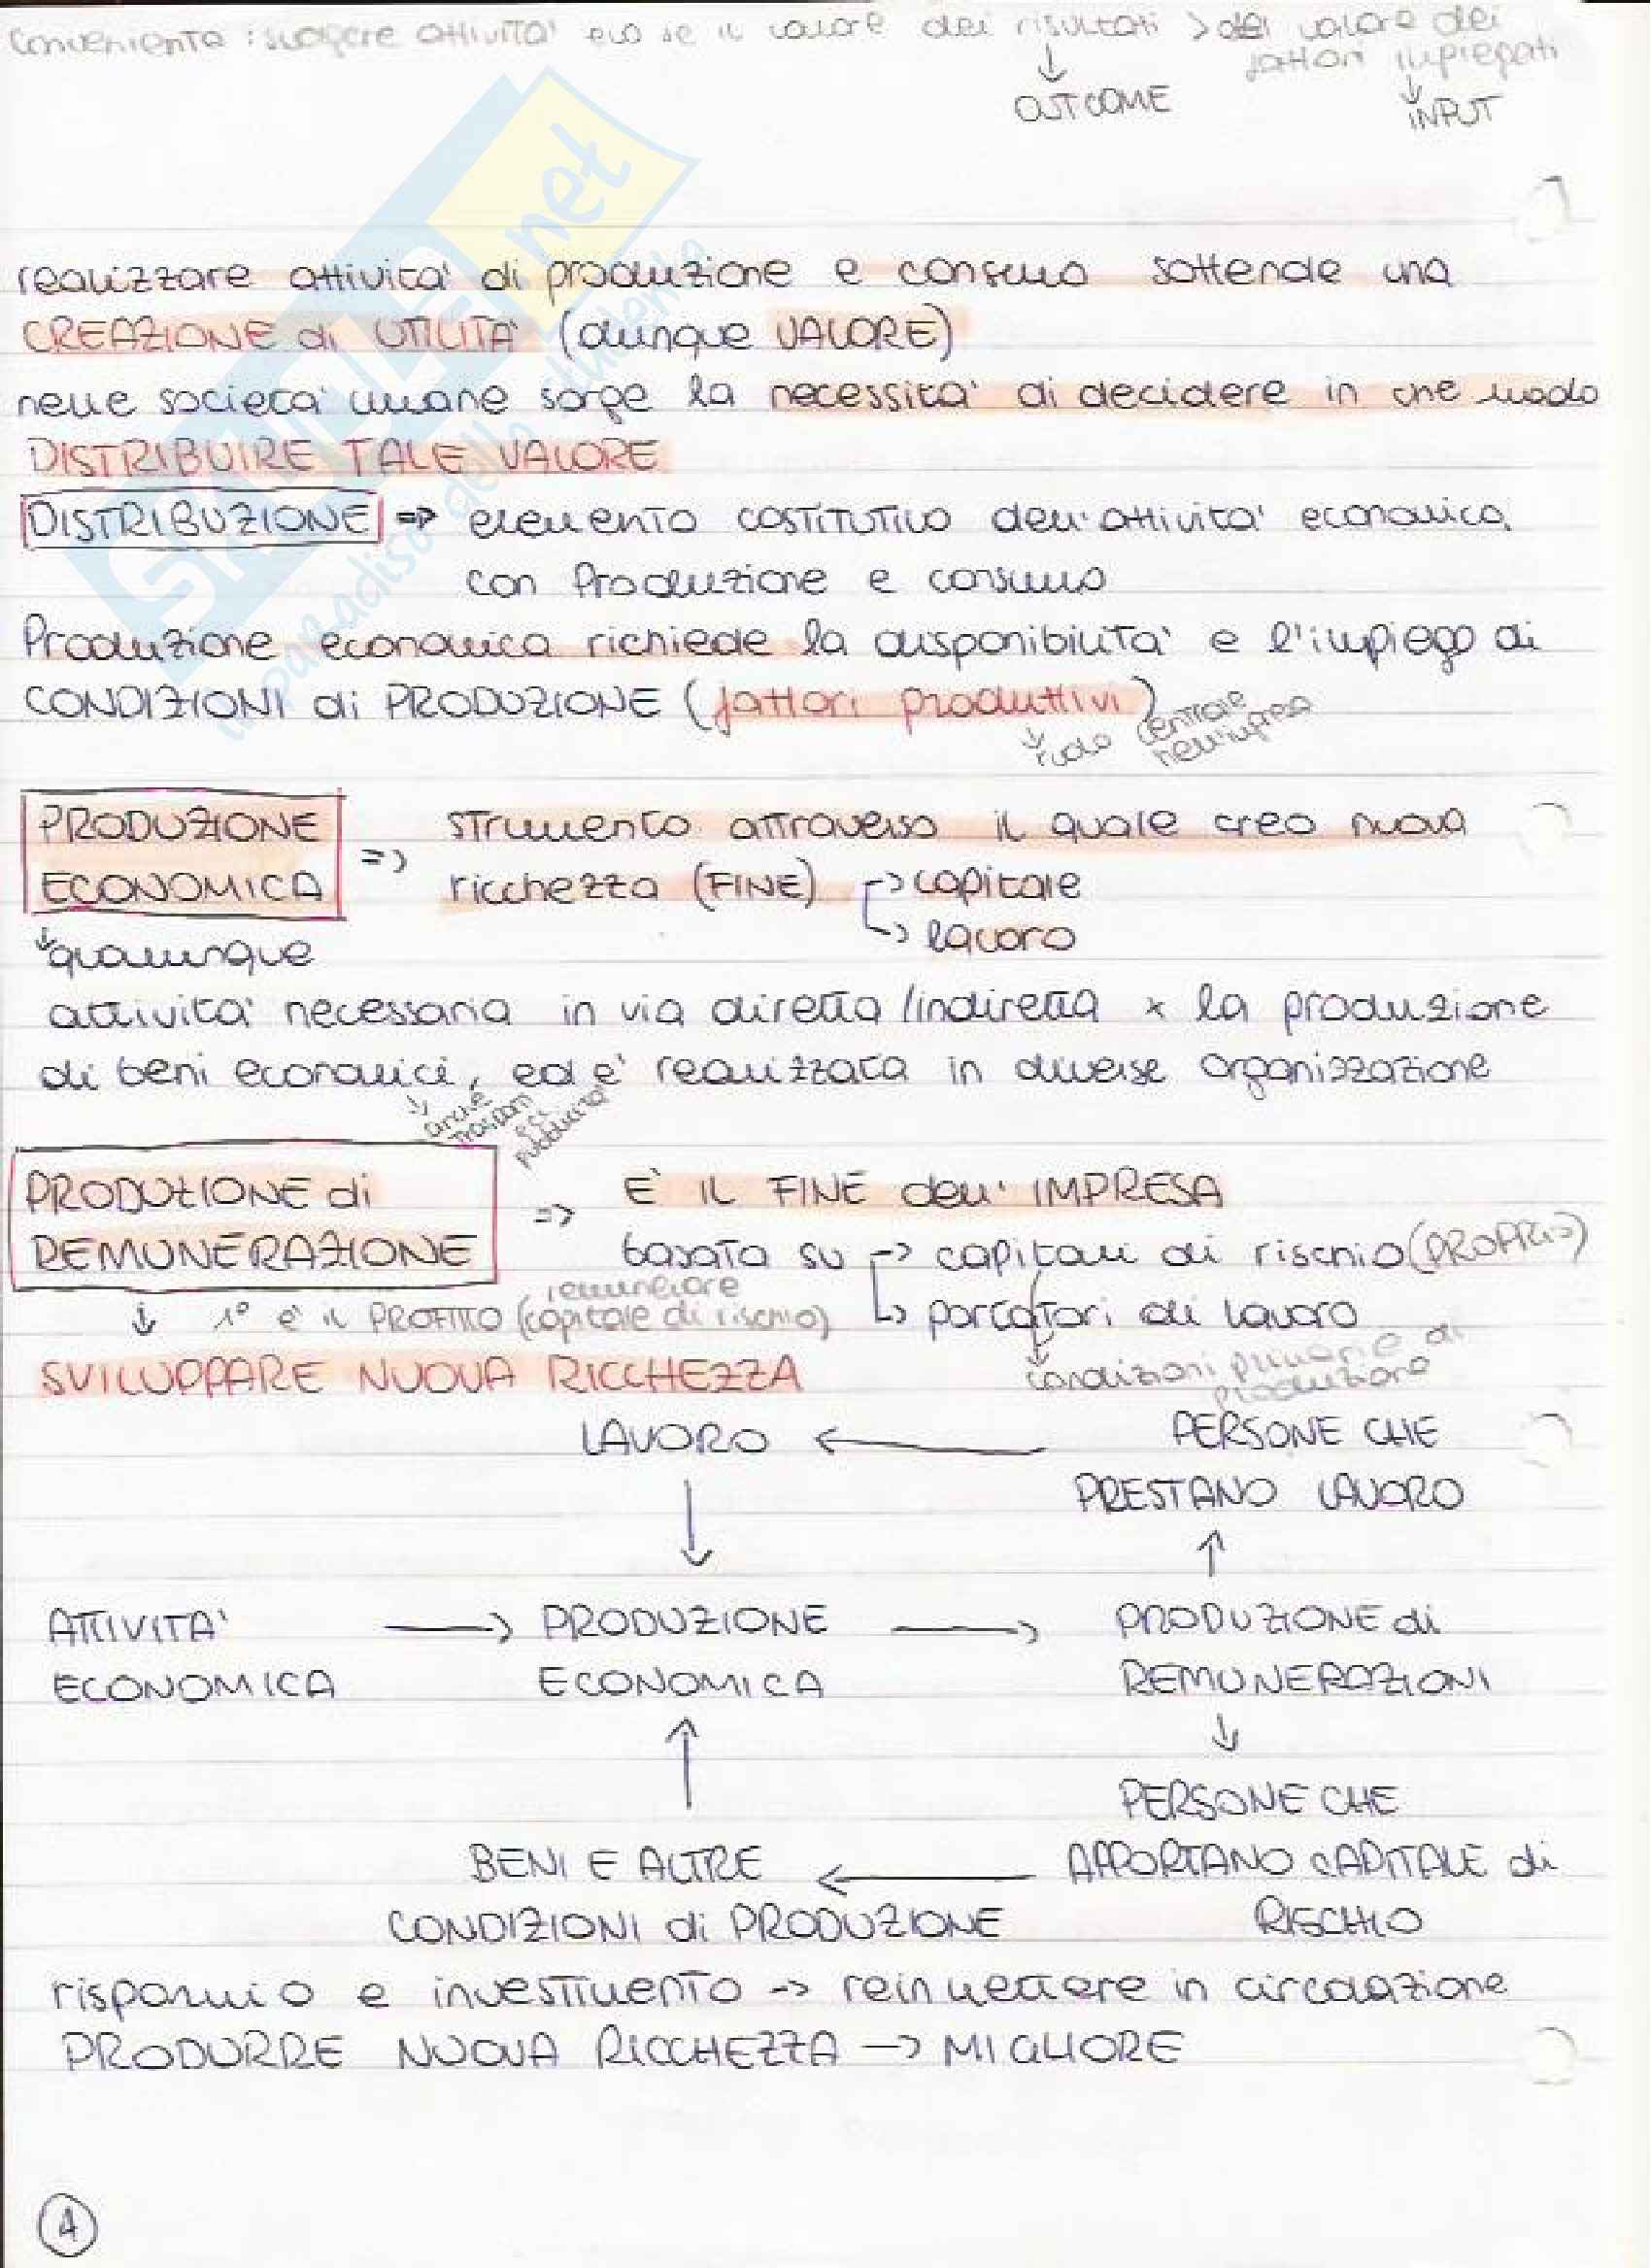 Conveniente : svolgere attività eco se il valore dei risultati > del valore dei
fattori impiegati
↓ OUTCOME
↓ INPUT
realizzare attività di produzione e consumo sottende una
CREAZIONE di UTILITÀ (dunque VALORE)
nelle società umane sorge la necessità di decidere in che modo
DISTRIBUIRE TALE VALORE
DISTRIBUZIONE => elemento costitutivo dell'attività economica
con Produzione e consumo
Produzione economica richiede la disponibilità e l'impiego di
CONDIZIONI di PRODUZIONE (fattori produttivi)
↓ ruolo centrale
nell'impresa
PRODUZIONE ECONOMICA => strumento attraverso il quale creo nuova
ricchezza (FINE) -> capitale
-> lavoro
↓ qualunque
attività necessaria in via diretta/indiretta x la produzione
di beni economici, ed è realizzata in diverse organizzazione
↓ anche
es:
pubblicità
PRODUZIONE di REMUNERAZIONE => E' IL FINE dell' IMPRESA
basata su -> capitali di rischio (PROPRIO)
-> portatori di lavoro
↓ condizioni primarie di
produzione
remunerare
↓ 1° è il PROFITTO (capitale di rischio)
SVILUPPARE NUOVA RICCHEZZA
LAVORO ← PERSONE CHE
PRESTANO LAVORO
↓ ↑
ATTIVITA' → PRODUZIONE → PRODUZIONE di
ECONOMICA ECONOMICA REMUNERAZIONI
↑ ↓
PERSONE CHE
BENI E ALTRE ← APPORTANO CAPITALE di
CONDIZIONI di PRODUZIONE RISCHIO
risparmio e investimento -> reimmettere in circolazione
PRODURRE NUOVA RICCHEZZA -> MIGLIORE
4
SKUOLA.net
il paradiso dello studente